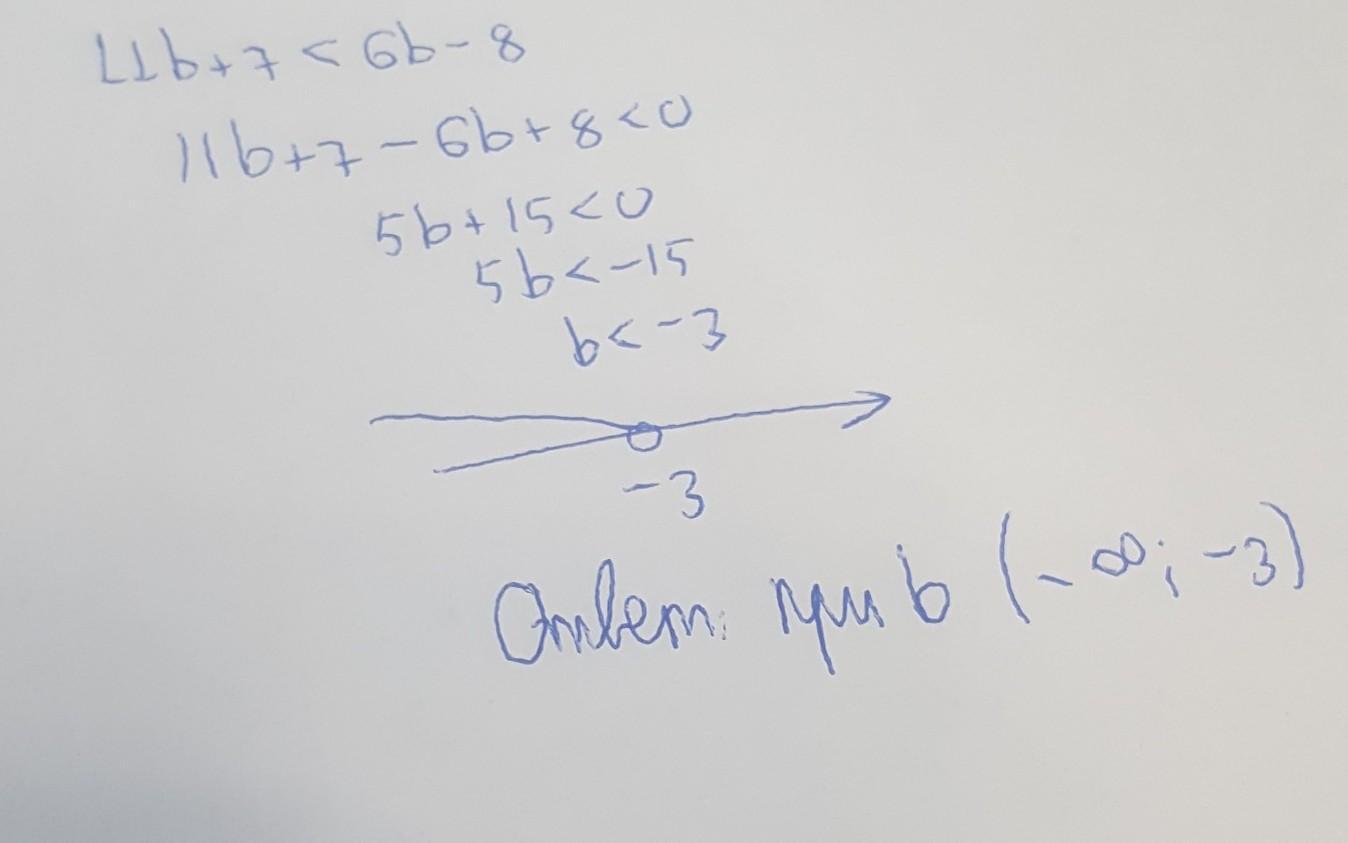 11b+7<6b-8
11b+7-6b+8<0
5b+15<0
5b<-15
b<-3
-3
Ответ: при b (-∞; -3)